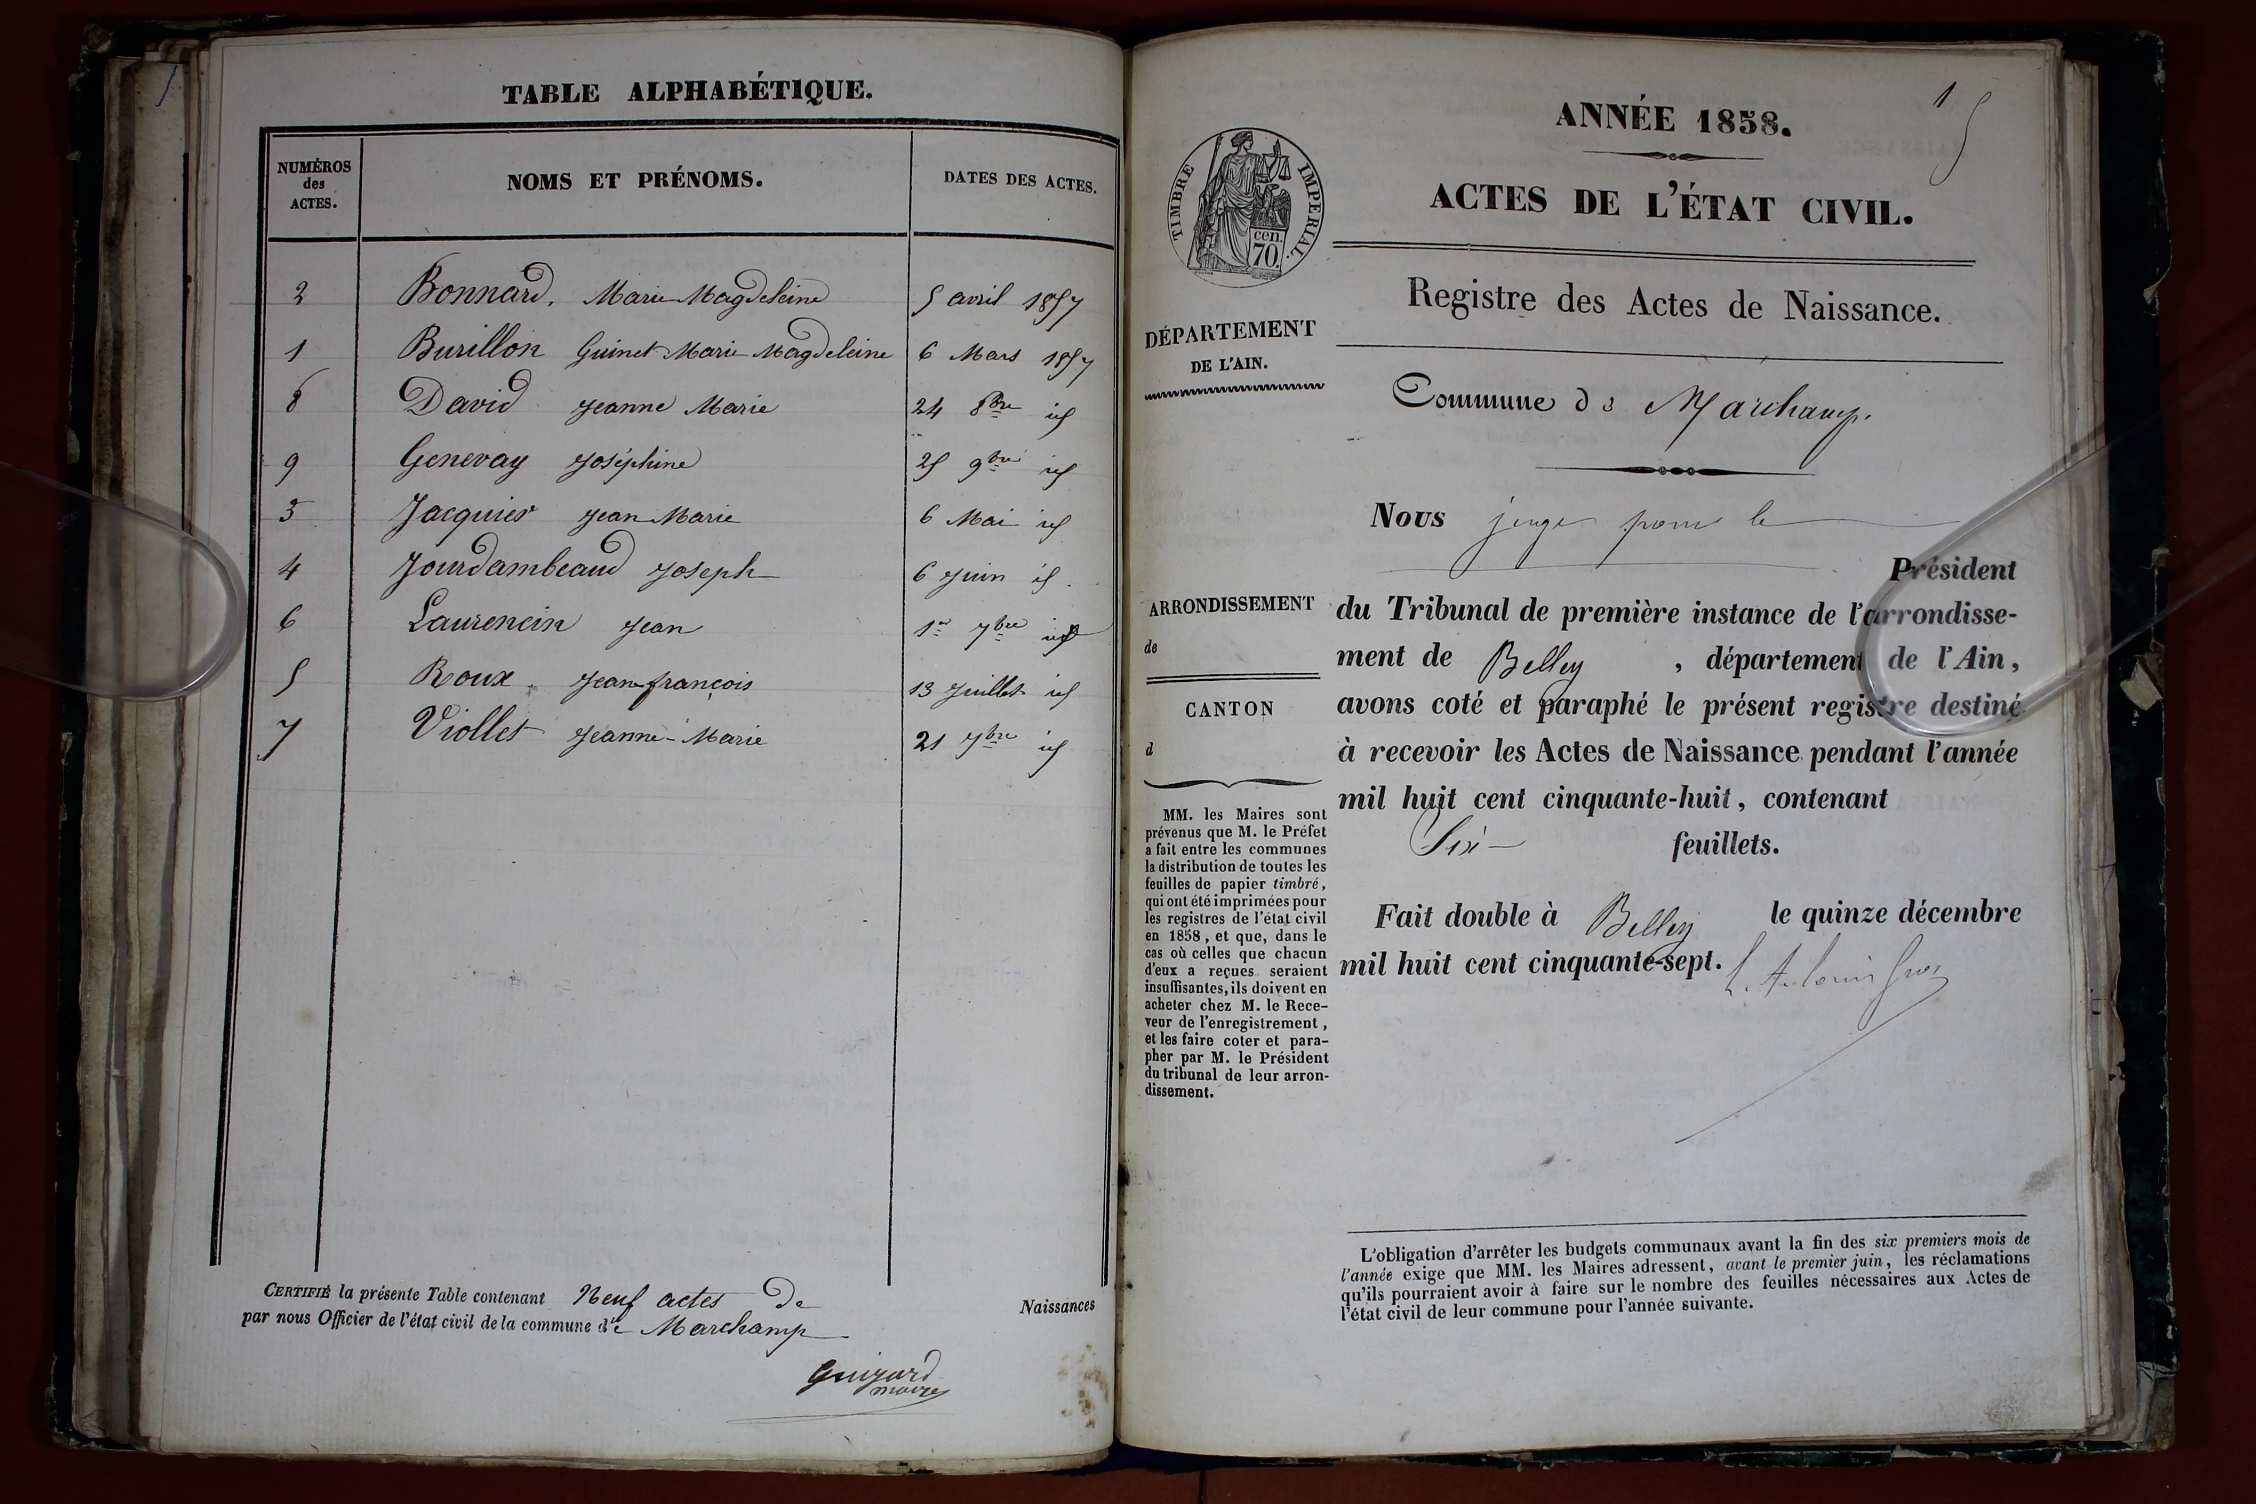 TABLE ALPHABÉTIQUE.
NUMÉROS
des
ACTES.
NOMS ET PRÉNOMS.
DATES DES ACTES.
2 Bonnard, Marie Magdeleine 5 avril 1857
1 Burillon Guinet Marie Magdeleine 6 Mars 1857
8 David Jeanne Marie 24 8bre id
9 Genevay Joséphine 25 9bre id
3 Jacquier Jean Marie 6 Mai id
4 Jourdambeaud Joseph 6 Juin id.
6 Laurencin Jean 1er 7bre id
5 Roux Jean françois 13 Juillet id
7 Viollet Jeanne-Marie 21 7bre id
CERTIFIÉ la présente Table contenant Neuf actes De Naissances
par nous Officier de l'état civil de la commune de Marchamp
Guigard
maire
1
ANNÉE 1858.
ACTES DE L'ÉTAT CIVIL.
TIMBRE IMPERIAL.
cen.
70.
Registre des Actes de Naissance.
DÉPARTEMENT
DE L'AIN.
Commune de Marchamp.
Nous juge pour le
Président
ARRONDISSEMENT
de
CANTON
d
du Tribunal de première instance de l'arrondisse-
ment de Belley, département de l'Ain,
avons coté et paraphé le présent registre destiné
à recevoir les Actes de Naissance pendant l'année
mil huit cent cinquante-huit, contenant
Six feuillets.
Fait double à Belley le quinze décembre
mil huit cent cinquante-sept.
MM. les Maires sont
prévenus que M. le Préfet
a fait entre les communes
la distribution de toutes les
feuilles de papier timbré,
qui ont été imprimées pour
les registres de l'état civil
en 1858, et que, dans le
cas où celles que chacun
d'eux a reçues seraient
insuffisantes, ils doivent en
acheter chez M. le Rece-
veur de l'enregistrement,
et les faire coter et para-
pher par M. le Président
du tribunal de leur arron-
dissement.
L'obligation d'arrêter les budgets communaux avant la fin des six premiers mois de
l'année exige que MM. les Maires adressent, avant le premier juin, les réclamations
qu'ils pourraient avoir à faire sur le nombre des feuilles nécessaires aux Actes de
l'état civil de leur commune pour l'année suivante.